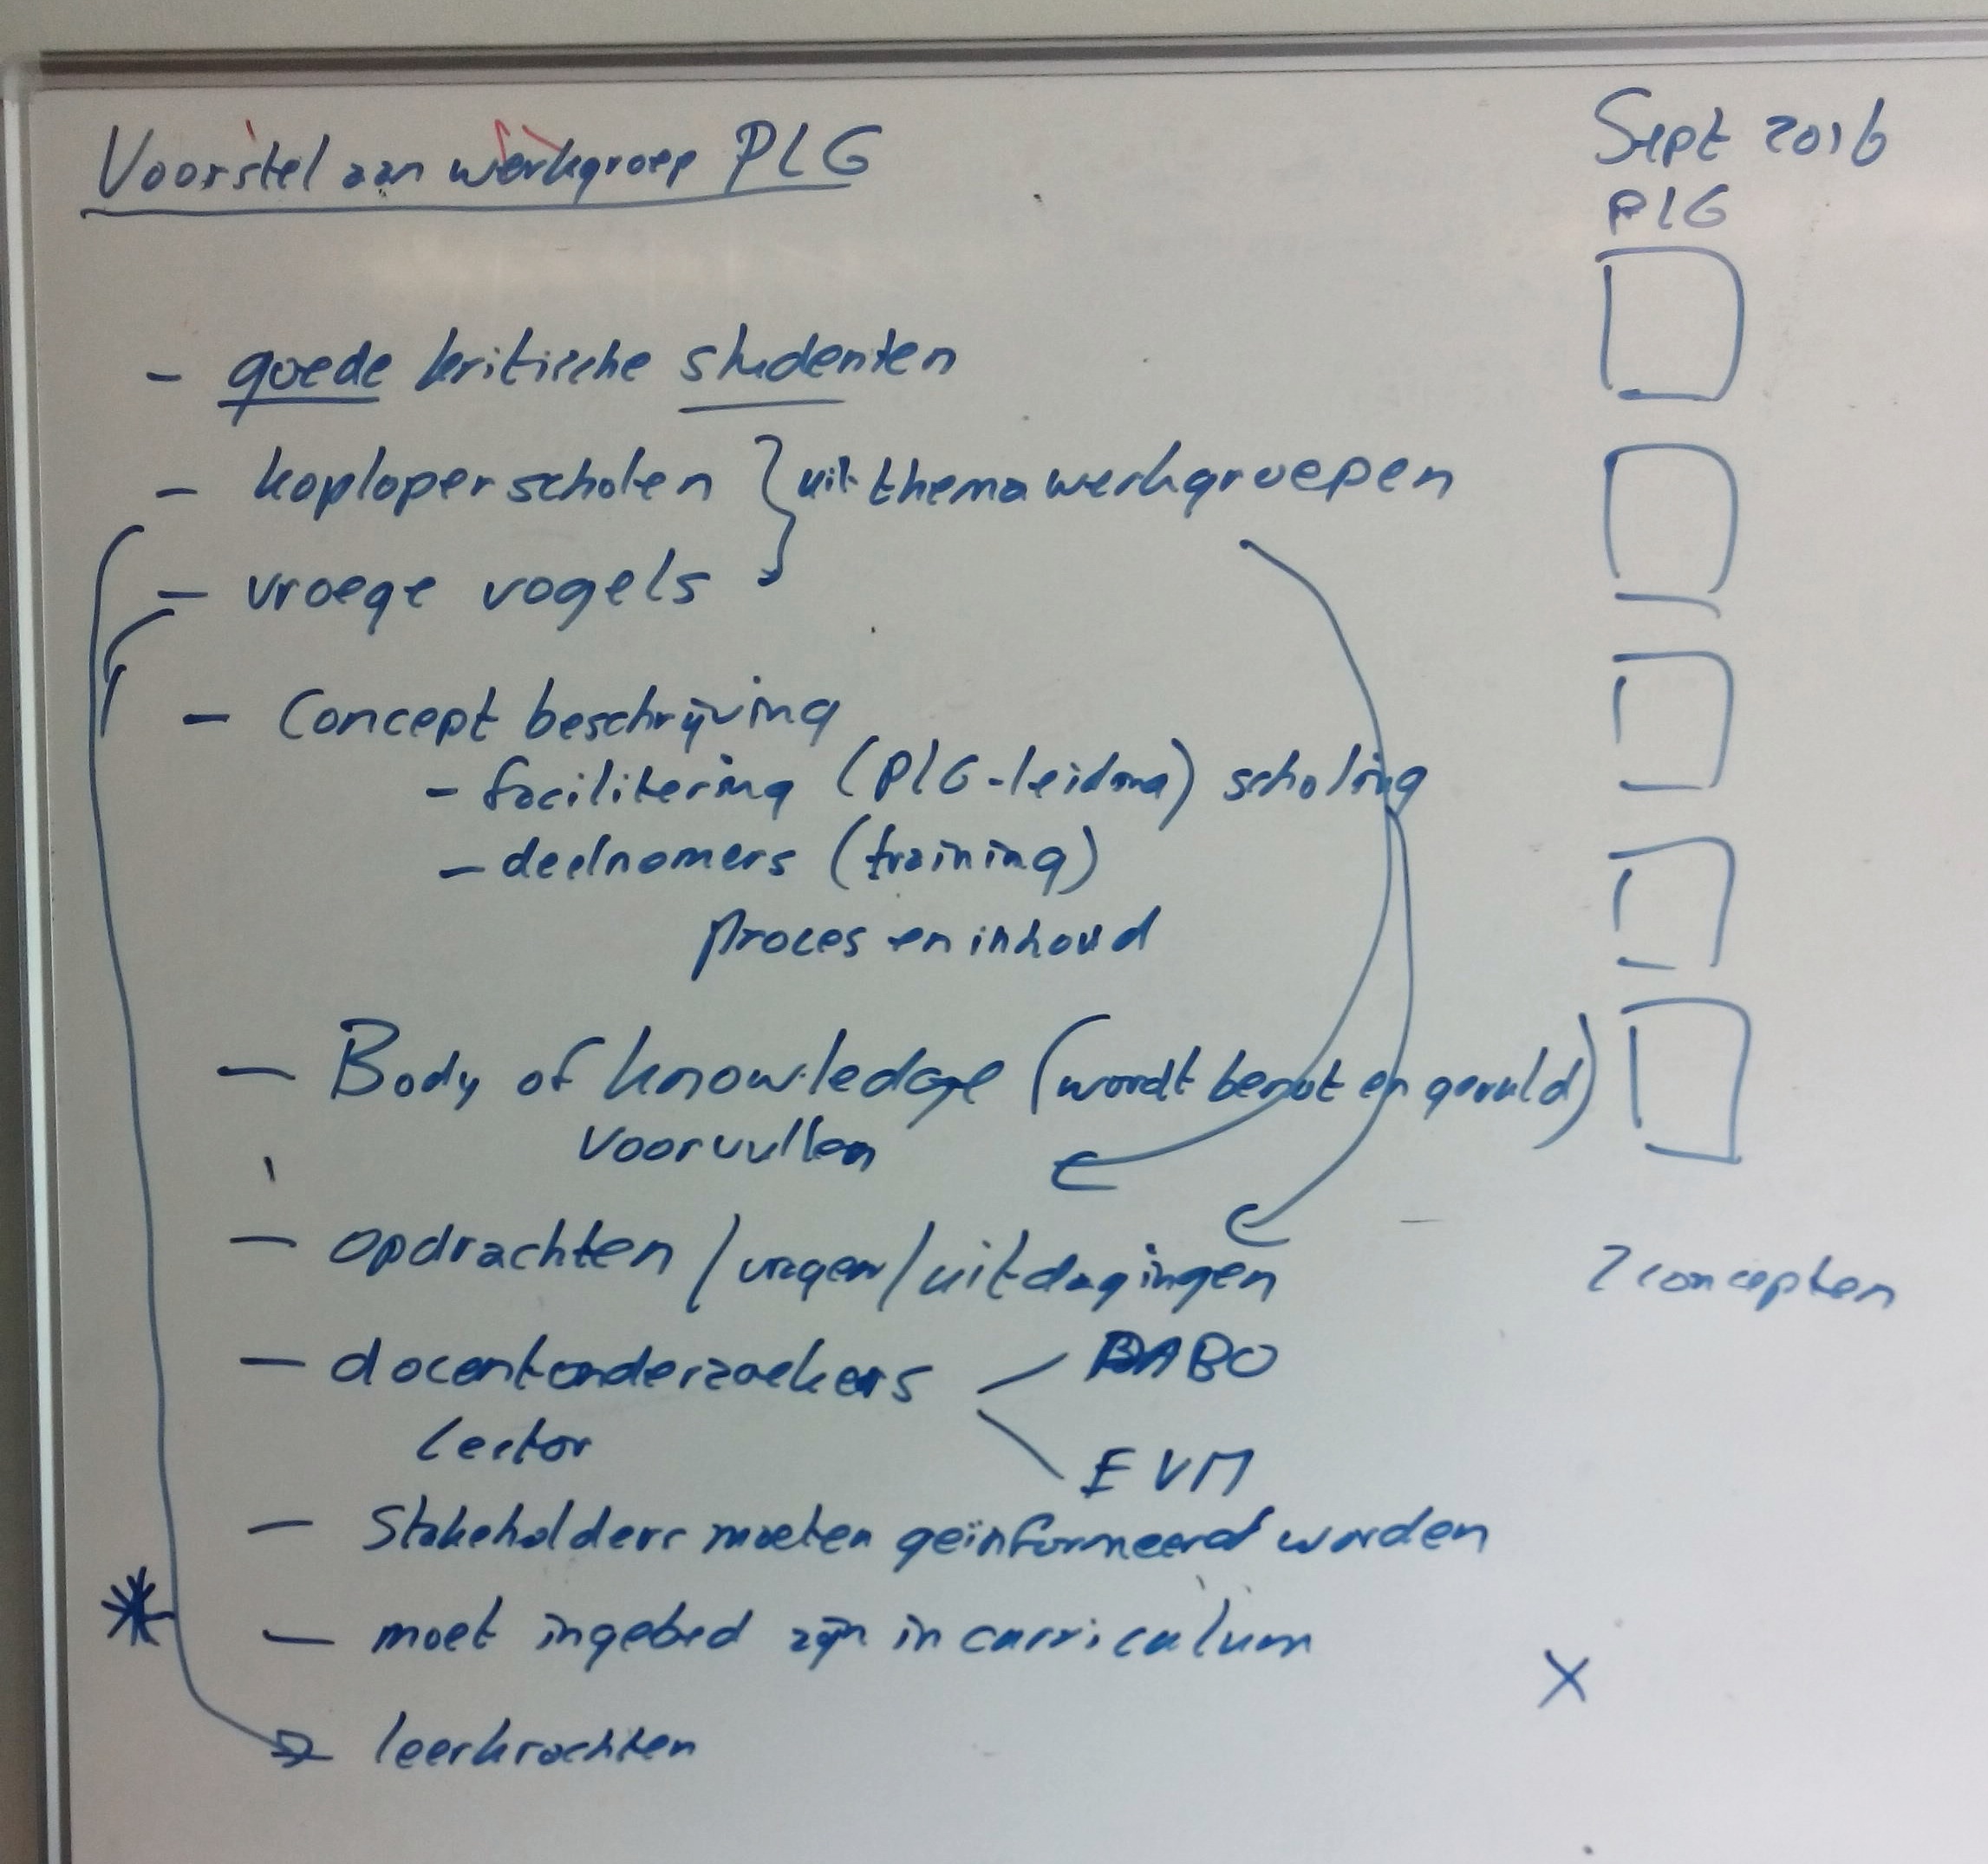 Voorstel aan werkgroep PLG
- goede kritische studenten
- koploperscholen } uit themawerkgroepen
- vroege vogels
- Concept beschrijving
- facilitering (PLG-leiding) scholing
- deelnemers (training)
proces en inhoud
- Body of knowledge (wordt benut en gevuld)
voorvullen
- opdrachten / vragen / uitdagingen
- docentonderzoekers
PABO
lector
EVM
- Stakeholders moeten geïnformeerd worden
- moet ingebed zijn in curriculum
leerkrachten
Sept 2016
PLG
concepten
X